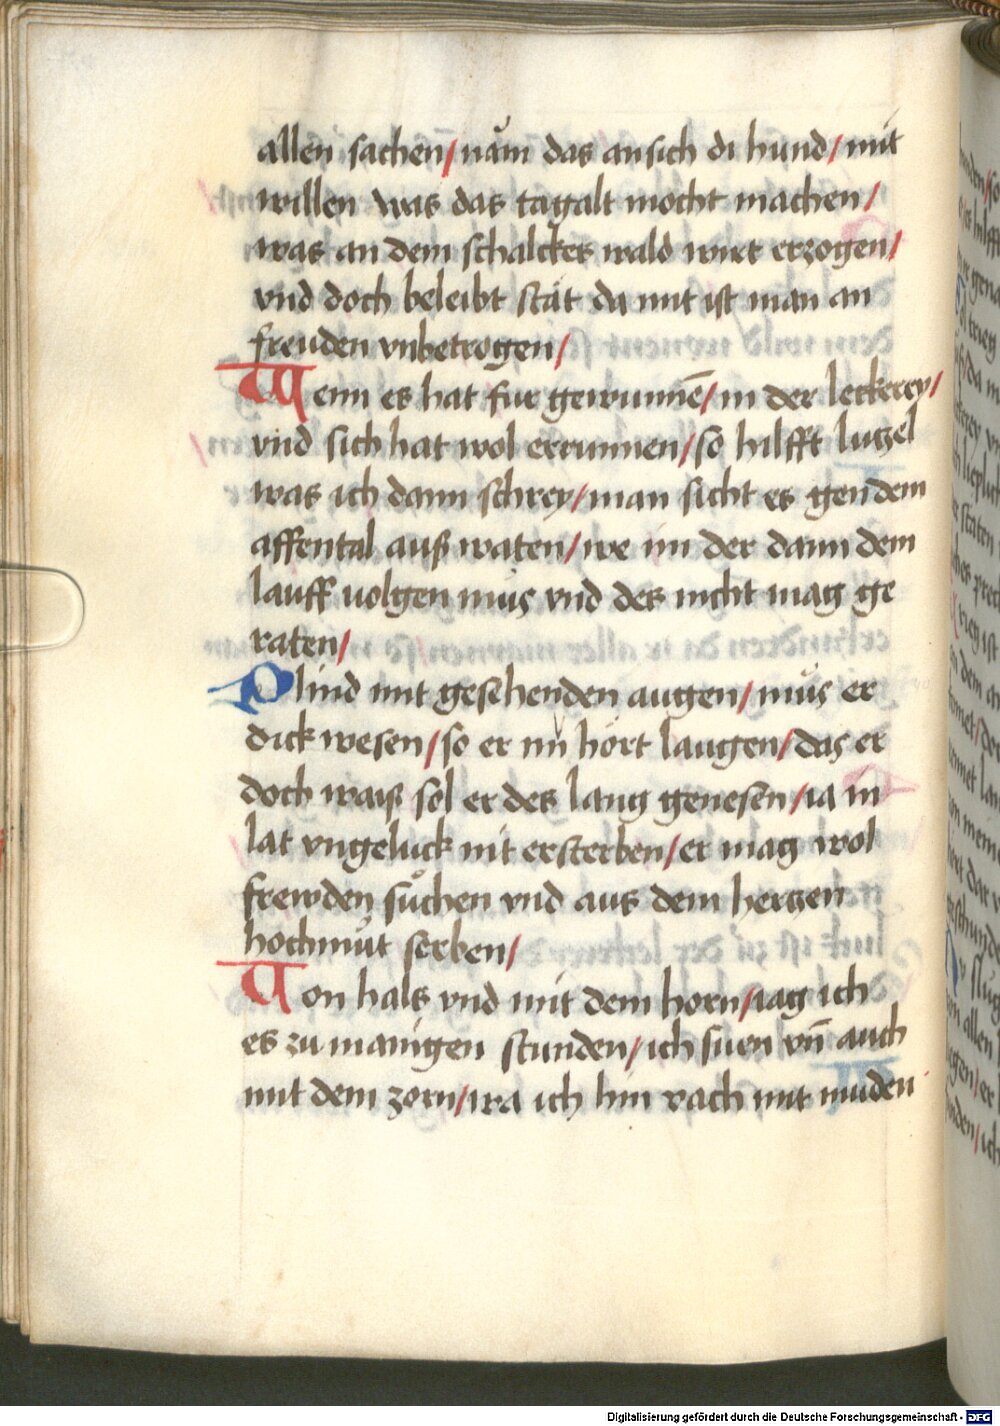 allen sachen/ nam̊ das an sich di hund/ mit
willen was das tagalt mocht machen/
was an dem schalckes wald wirt erzogen/
vnd doch beleibt stät da mit ist man an
freuden vnbetrogen/
Wenn es hat fur gewunnē/ in der leckerey/
vnd sich hat wol errunnen/ so hilfft lutzel
was ich dann schrey/ man sicht es gen dem
affental auß waten/ we im der dann dem
lauff uolgen mus vnd des nicht mag ge
raten/
Plind mit gesehenden augen/ můs er
dick wesen/ so er im hört laugen/ das er
doch waiß sol er des lang genesen/ ia in
lat vngeluck nit ersterben/ er mag wol
frewden sůchen vnd aus dem hertzen
hochmůt serben/
Von hals vnd mit dem horn/ iag ich
es zu manigen stunden/ ich suen vn̄ auch
mit dem zorn/ wa ich hin rach mit muden
Digitalisierung gefördert durch die Deutsche Forschungsgemeinschaft - DFG